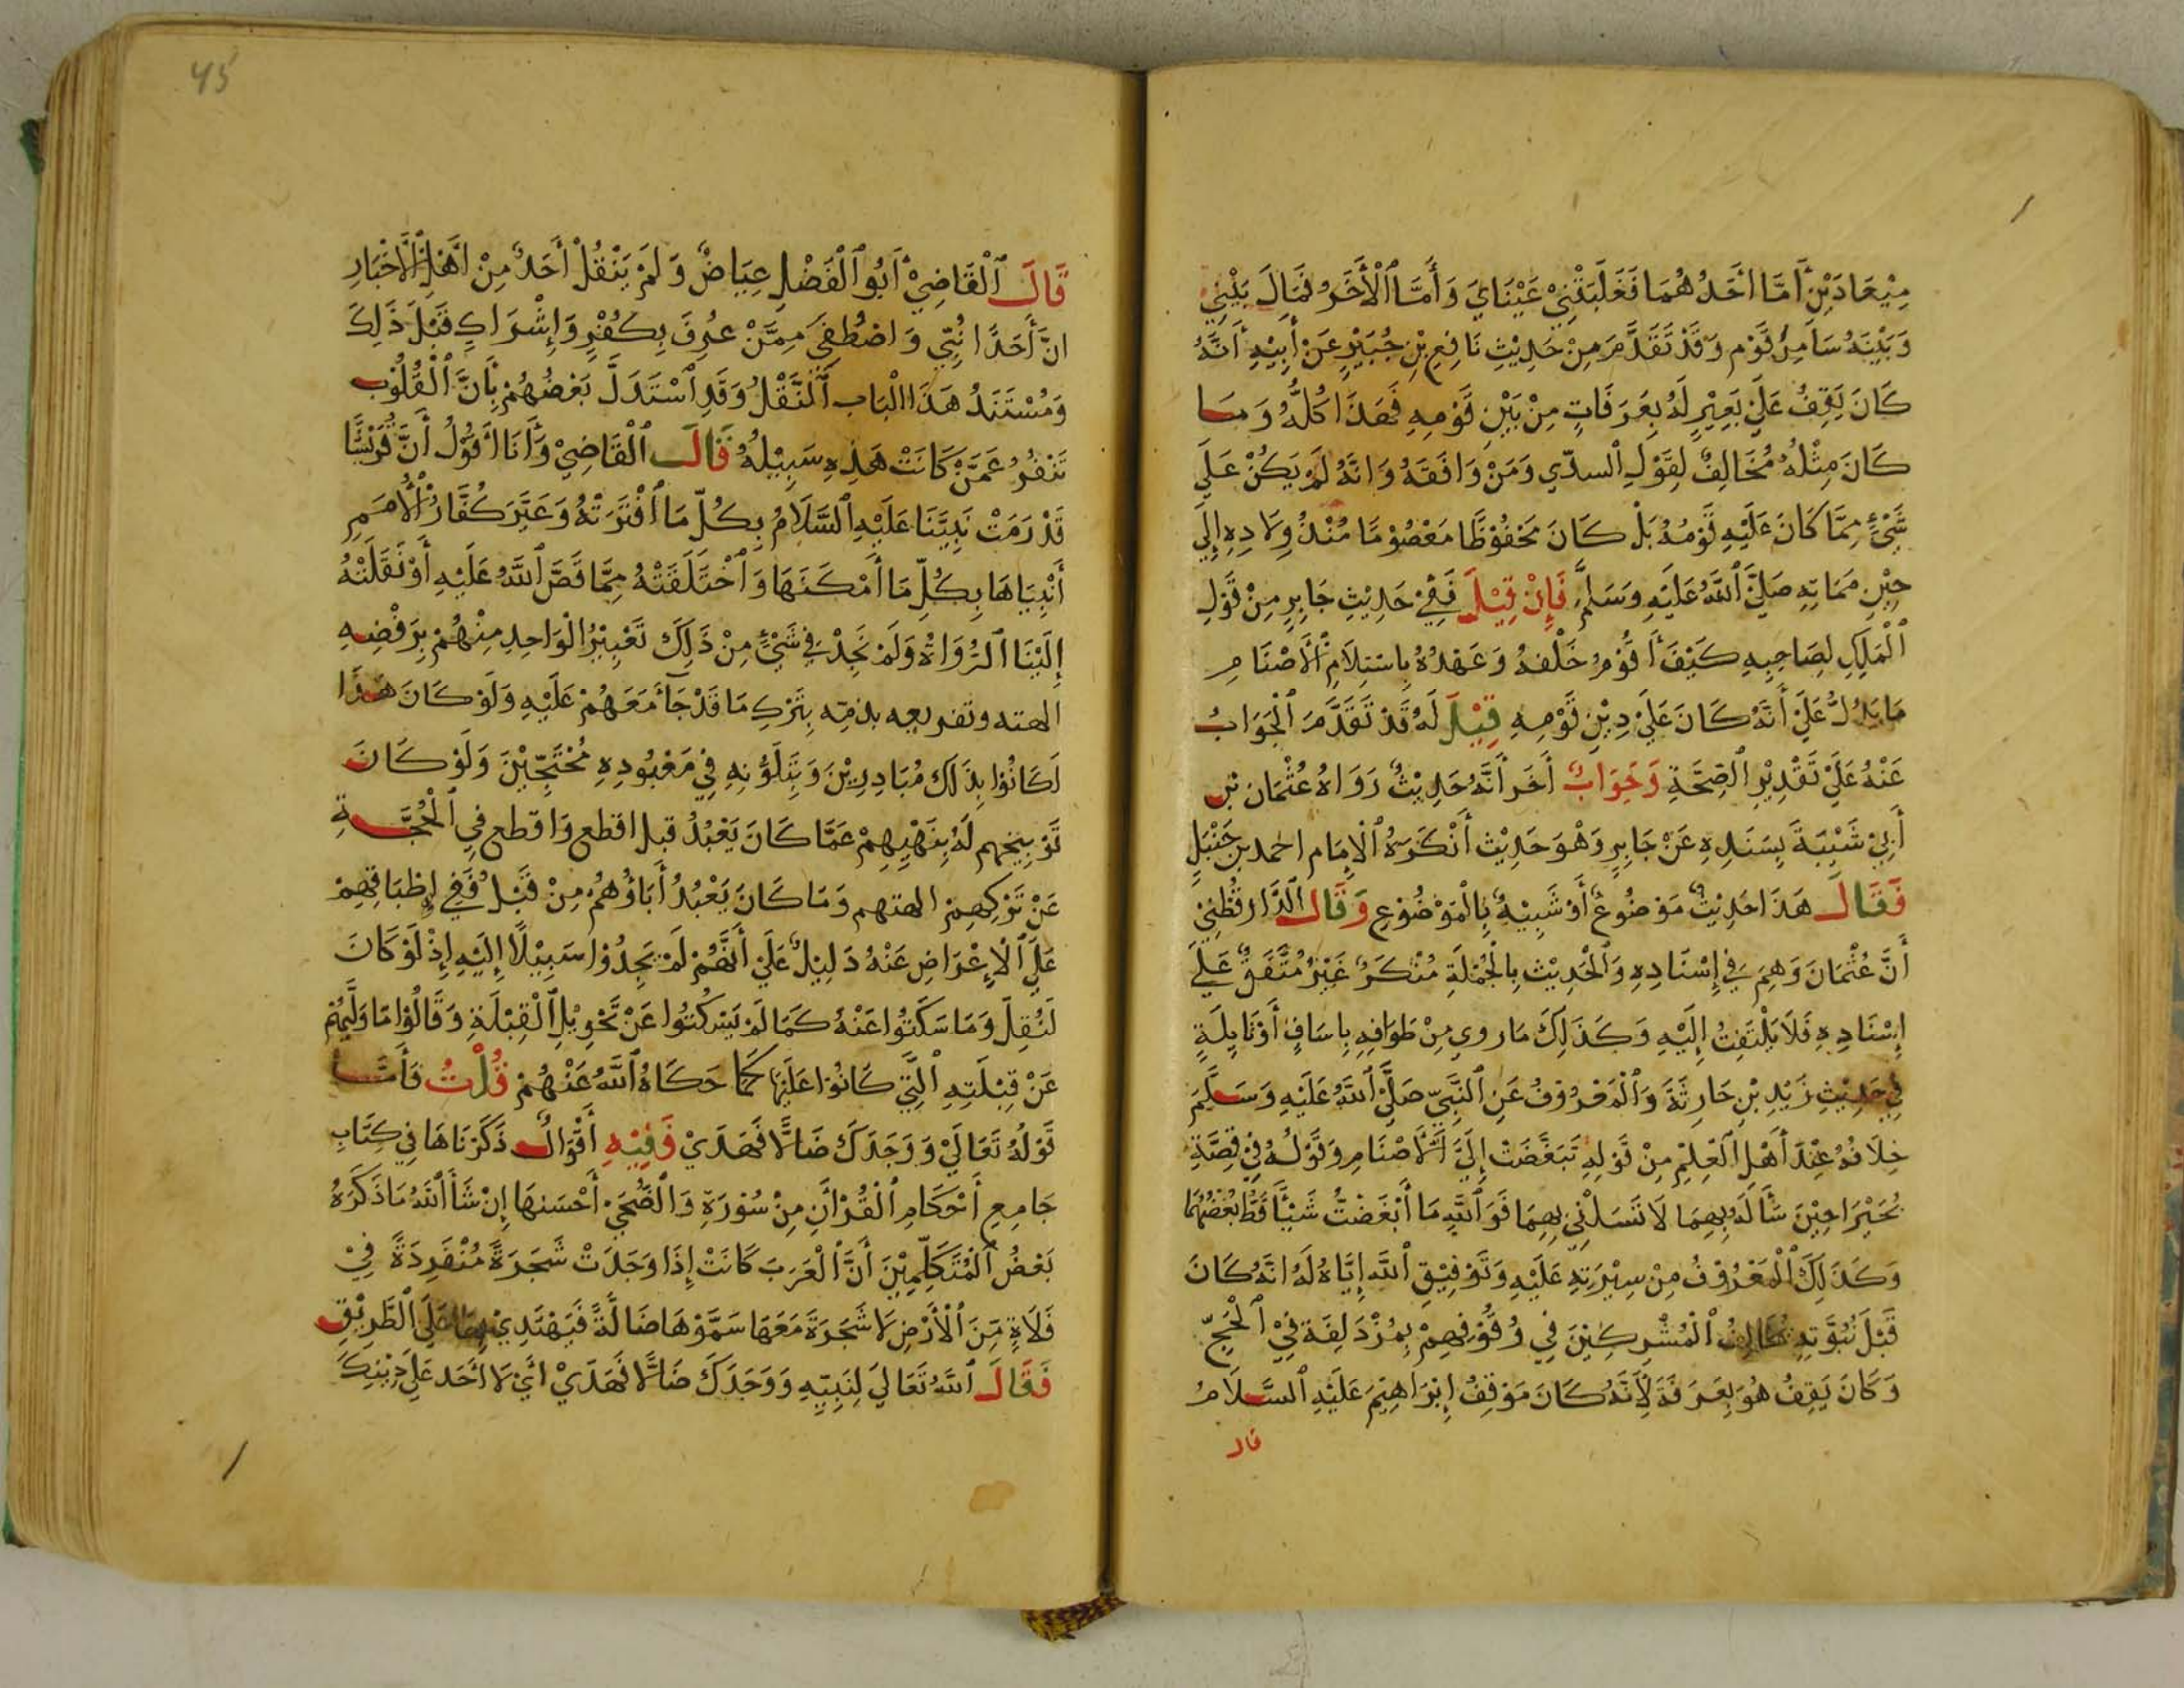 مِيْعَادَيْنِ أَمَّا أَحَدُهُمَا فَغَلَبَتْنِيْ عَيْنَايَ وَأَمَّا الْأَخَرُ فَحَالَ بَيْنِي
وَبَيْنَهُ سَامِرُ قَوْمٍ وَقَدْ تَقَدَّمَ مِنْ حَدِيْثِ نَافِعِ بْنِ جُبَيْرٍ عَنْ أَبِيْهِ أَنَّهُ
كَانَ يَقِفُ عَلَيْ بَعِيْرٍ لَهُ بِعَرَفَاتٍ مِنْ بَيْنِ قَوْمِهِ فَهَذَا كُلُّهُ وَمَا
كَانَ مِثْلَهُ مُخَالِفٌ لِقَوْلِ السدّي وَمَنْ وَافَقَهُ وَانَّهُ لَمْ يَكُنْ عَلَي
شَيْءٍ مِمَّا كَانَ عَلَيْهِ قَوْمُهُ بَلْ كَانَ مَحْفُوْظًا مَعْصُوْمًا مُنْذُ وِلَادِهِ إِلَي
حِيْنِ مَمَاتِهِ صَلَّيَ اللَّهُ عَلَيْهِ وَسَلَّمَ فَإِنْ قِيْلَ فَفِيْ حَدِيْثِ جَابِرٍ مِنْ قَوْلِ
الْمَلَكِ لِصَاحِبِهِ كَيْفَ أَقُوْمُ خَلْفهُ وَعَهْدُهُ بِاسْتِلَامِ الْأَصْنَامِ
مَا يَدُلُّ عَلَيْ أَنَّهُ كَانَ عَلَيْ دِيْنِ قَوْمِهِ قِيْلَ لَهُ قَدْ تَقَدَّمَ الْجَوَابُ
عَنْهُ عَلَيْ تَقْدِيْرِ الصِّحَّةِ وَجَوَابٌ أَخَر أَنَّهُ حَدِيْثٌ رَوَاهُ عُثْمَان بْن
أَبِيْ شَيْبَةَ بِسَنَدِهِ عَنْ جَابِرٍ وَهْوَ حَدِيْث أَنْكَرَهُ الْاِمَام احمد بن حَنْبَلٍ
فَقَالَ هَذَا حَدِيْثٌ مَوْضُوعٌ أَوْ شَبِيْهٌ بِالْمَوْضُوْعِ وَقَالَ الدَّارقُطْنِيْ
أَنَّ عُثْمَانَ وَهِمَ فِي إِسْنَادِهِ وَالْحَدِيْث بِالْجُمْلَةِ مُنْكَرٌ غَيْرُ مُتَّفَقٌ عَلَي
اِسْنَادِهِ فَلَا يُلْتَفَتُ إِلَيْهِ وَكَذَلِكَ مَا روي مِنْ طَوَافِهِ بِاسَافٍ أَوْ نَايِلَةٍ
فِي حَدِيْثِ زَيْدِ بْنِ حَارِثَةَ وَالْمَعْرُوْفُ عَنِ النَّبِيّ صَلَّيَ اللَّهُ عَلَيْهِ وَسَلَّمَ
خِلَافُهُ عِنْدَ أَهْلِ الْعِلْمِ مِنْ قَوْلِهِ تَبَغَّضَتْ إِلَيَّ الْأَصْنَامِ وَقَوْلُهُ فِيْ قِصَّةِ
بُحَيْرَا حِيْنَ سَأَلَهُ بِهِمَا لَا تَسَلْنِيْ بِهِمَا فَوَاللَّهِ مَا أَبْغَضْتُ شَيْأً قَطُّ بُغْضُهُمَا
وَكَذَلِكَ الْمَعْرُوْفُ مِنْ سِيْرَتِهِ عَلَيْهِ وَتَوْفِيْقِ اللَّهِ إِيَّاهُ لَهُ انَّهُ كَانَ
قَبْلَ نُبُوَّتِهِ مُخَالِفُ الْمُشْرِكِيْنَ فِي وُقُوْفِهِمْ بِمُزْدَلِفَة فِيْ الْحَجّ
وَكَانَ يَقِفُ هُوَ بِعَرَفَةَ لِأَنَّهُ كَانَ مَوْقِفُ إِبْرَاهِيْمَ عَلَيْهِ السَّلَامُ
قال
45
قَالَ الْقَاضِيْ أَبُو الْفَضْلِ عِيَاضٌ وَلَمْ يَنْقُلْ أَحَدٌ مِنْ أَهْلِ الْأَخْبَارِ
انَّ أَحَدًا نُبِّي وَاصْطُفِيَ مِمَّنْ عُرِفَ بِكُفْرٍ وَإِشْرَاكٍ قَبْلَ ذَلِكَ
وَمُسْتَنَدُ هَذَا الْبَابِ النَّقْلُ وَقَدِ اسْتَدَلَّ بَعْضُهُمْ بِأَنَّ الْقُلُوْبَ
تَنْفُرُ عَمَّنْ كَانَتْ هَذِهِ سَبِيْلُهُ قَالَ الْقَاضِيْ وَأَنَا أَقُوْلُ أَنَّ قُرَيْشًا
قَدْ رَمَتْ نَبِيَّنَا عَلَيْهِ السَّلَامُ بِكُلّ مَا افْتَرَتْهُ وَعَيَّرَ كُفَّارُ الْأُمَمِ
أَنْبِيَاهَا بِكُلِّ مَا أَمْكَنَهَا وَاخْتَلَقَتْهُ مِمَّا قَصَّ اللَّهُ عَلَيْهِ أَوْ نَقَلَتْهُ
إِلَيْنَا الرُّوَاةُ وَلَمْ نَجِدْ فِي شَيْءٍ مِنْ ذَلِكَ تَعْيِيْرُ الْوَاحِدِ مِنْهُمْ بِرَفْضِهِ
الهته وتفريعه بذمّه بِتَرْكِ مَا قَدْ جَأَمَعَهُمْ عَلَيْهِ وَلَوْ كَانَ هَذَا
لَكَانُوْا بِذَلِكَ مُبَادِرِيْنَ وَبِتَلَوُّنِهِ فِيْ مَعْبُودِهِ مُحْتَجِّيْنَ وَلَوْ كَانَ
تَوْبِيخهم لَهُ بِنَهْيِهِمْ عَمَّا كَانَ يَعْبُدُ قبل اقطع وَاقطع فِي الْحُجَّةِ
عَنْ تَرْكِهِمْ الهتهم وَمَا كَانَ يَعْبُدُ أَبَاؤُهُمْ مِنْ قَبْلُ فَفِي إِطْبَاقِهِمْ
عَلَي الْإِعْرَاضِ عَنْهُ دَلِيْلٌ عَلَيْ أَنَّهُمْ لَمْ يَجِدُوْا سَبِيْلًا إِلَيْهِ إِذْ لَوْ كَانَ
لَنُقِلَ وَمَا سَكَتُوا عَنْهُ كَمَا لَمْ يَسْكُتُوا عَنْ تَحْوِيْلِ الْقِبْلَةِ وَقَالُوْا مَا وَلَّيهُمْ
عَنْ قِبْلَتِهِ الَّتِيْ كَانُوْا عَلَيْهَا كَمَا حَكَاهُ اللَّهُ عَنْهُمْ قُلْتُ فَأَمَّا
قَوْلُهُ تَعَالَيْ وَوَجَدَكَ ضَالًّا فَهَدَيْ فَفِيْهِ أَقْوَالٌ ذَكَرْنَاهَا فِي كِتَابِ
جَامِعِ أَحْكَامِ الْقُرْأَنِ مِنْ سُوْرَةِ وَالضُّحَيْ أَحْسَنهَا إِنْ شَأَ اللَّهُ مَا ذَكَرَهُ
بَعْضُ الْمُتَكَلِّمِيْنَ أَنَّ الْعَرَبَ كَانَتْ إِذَا وَجَدَتْ شَجَرَةً مُنْفَرِدَةً فِيْ
فَلَاةٍ مِّنَ الْأَرْضِ لَا شَجَرَةَ مَعَهَا سَمَّوْهَا ضَالَّةً فَيَهْتَدِيْ بِهَا عَلَي الطَّرِيْقِ
فَقَالَ اللَّهُ تَعَالَي لِنَبِيّهِ وَوَجَدَكَ ضَالًّا فَهَدَيْ أَيْ لَا أَحَد عَلَي دِيْنِكَ